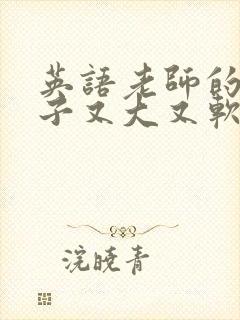 英語老師的
子又大又軟
浣曉青